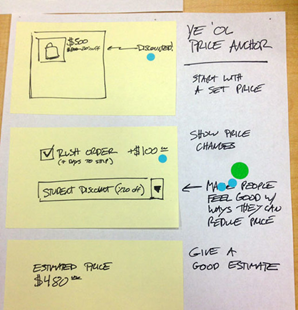 $500
DISCOUNTED!
YE 'OL
PRICE ANCHOR
START WITH
A SET PRICE
RUSH ORDER +$100
(7 DAYS TO SHIP)
STUDENT DISCOUNT ($120 off)
SHOW PRICE
CHANGES
PEOPLE
FEEL GOOD W/
WAYS THEY CAN
REDUCE PRICE
ESTIMATED PRICE
$480
GIVE A
GOOD ESTIMATE